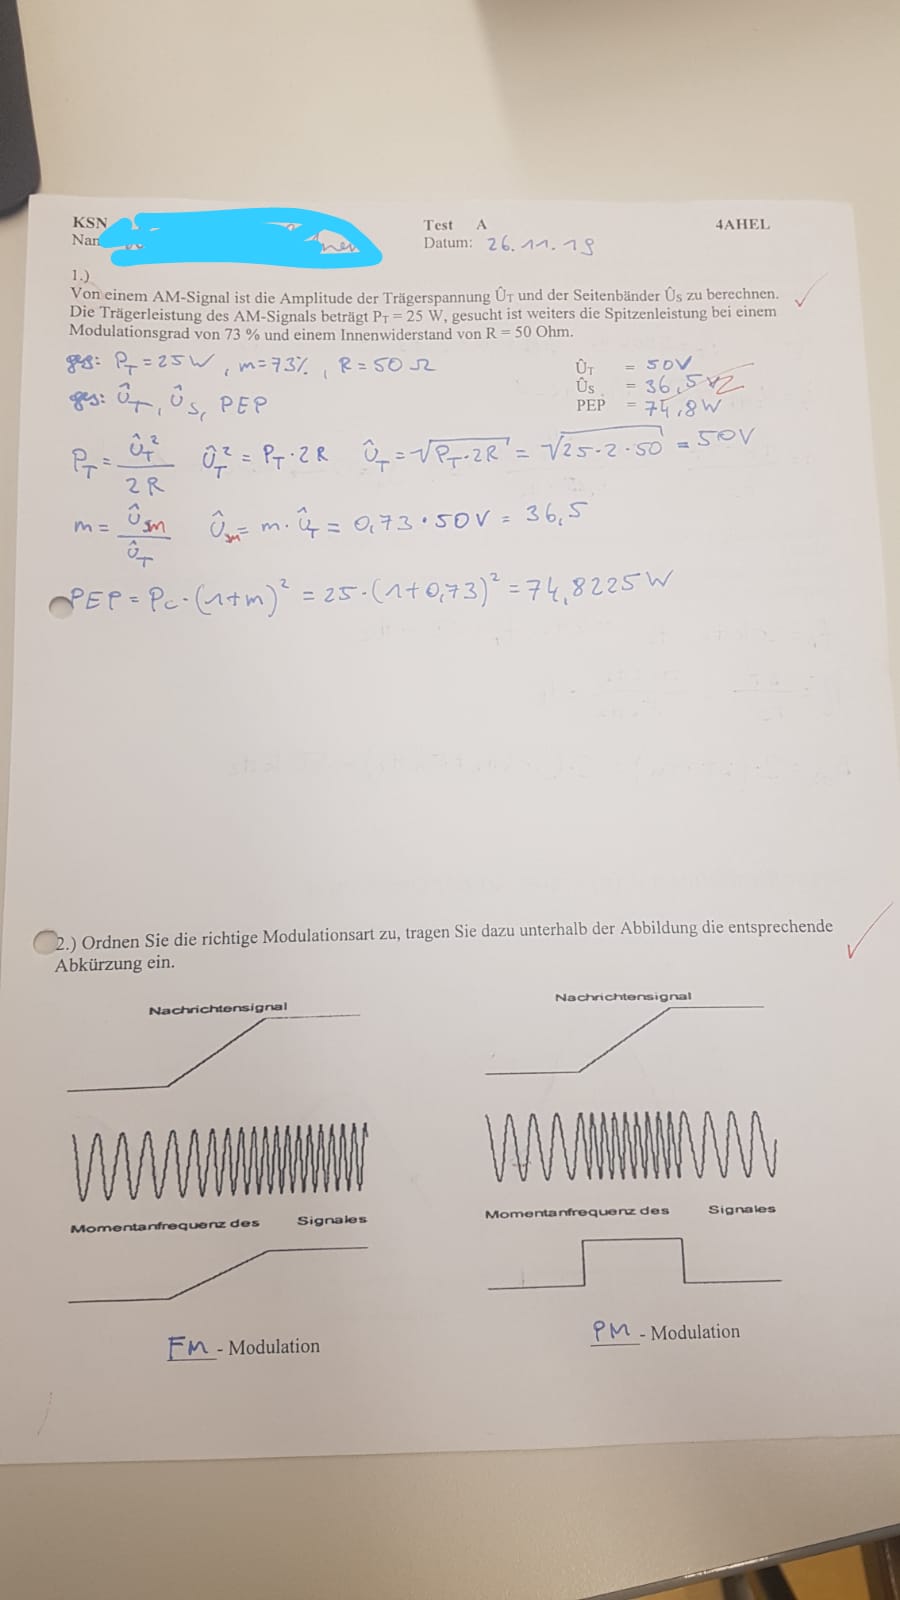 KSN Test A 4AHEL
Nan Datum: 26.11.19
1.)
Von einem AM-Signal ist die Amplitude der Trägerspannung ÛT und der Seitenbänder ÛS zu berechnen.
Die Trägerleistung des AM-Signals beträgt PT = 25 W, gesucht ist weiters die Spitzenleistung bei einem
Modulationsgrad von 73 % und einem Innenwiderstand von R = 50 Ohm.
geg: PT = 25W , m=73% , R = 50 Ω
ÛT = 50V
ÛS = 36,5 V
PEP = 74,8W
ges: ÛT, ÛS, PEP
PT = ÛT² / 2R ÛT² = PT · 2R ÛT = √PT·2R = √25·2·50 = 50V
m = ÛSM / ÛT ÛSM = m · ÛT = 0,73 · 50V = 36,5
PEP = PC · (1+m)² = 25·(1+0,73)² = 74,8225W
2.) Ordnen Sie die richtige Modulationsart zu, tragen Sie dazu unterhalb der Abbildung die entsprechende
Abkürzung ein.
Nachrichtensignal
Momentanfrequenz des Signales
FM - Modulation
Nachrichtensignal
Momentanfrequenz des Signales
PM - Modulation